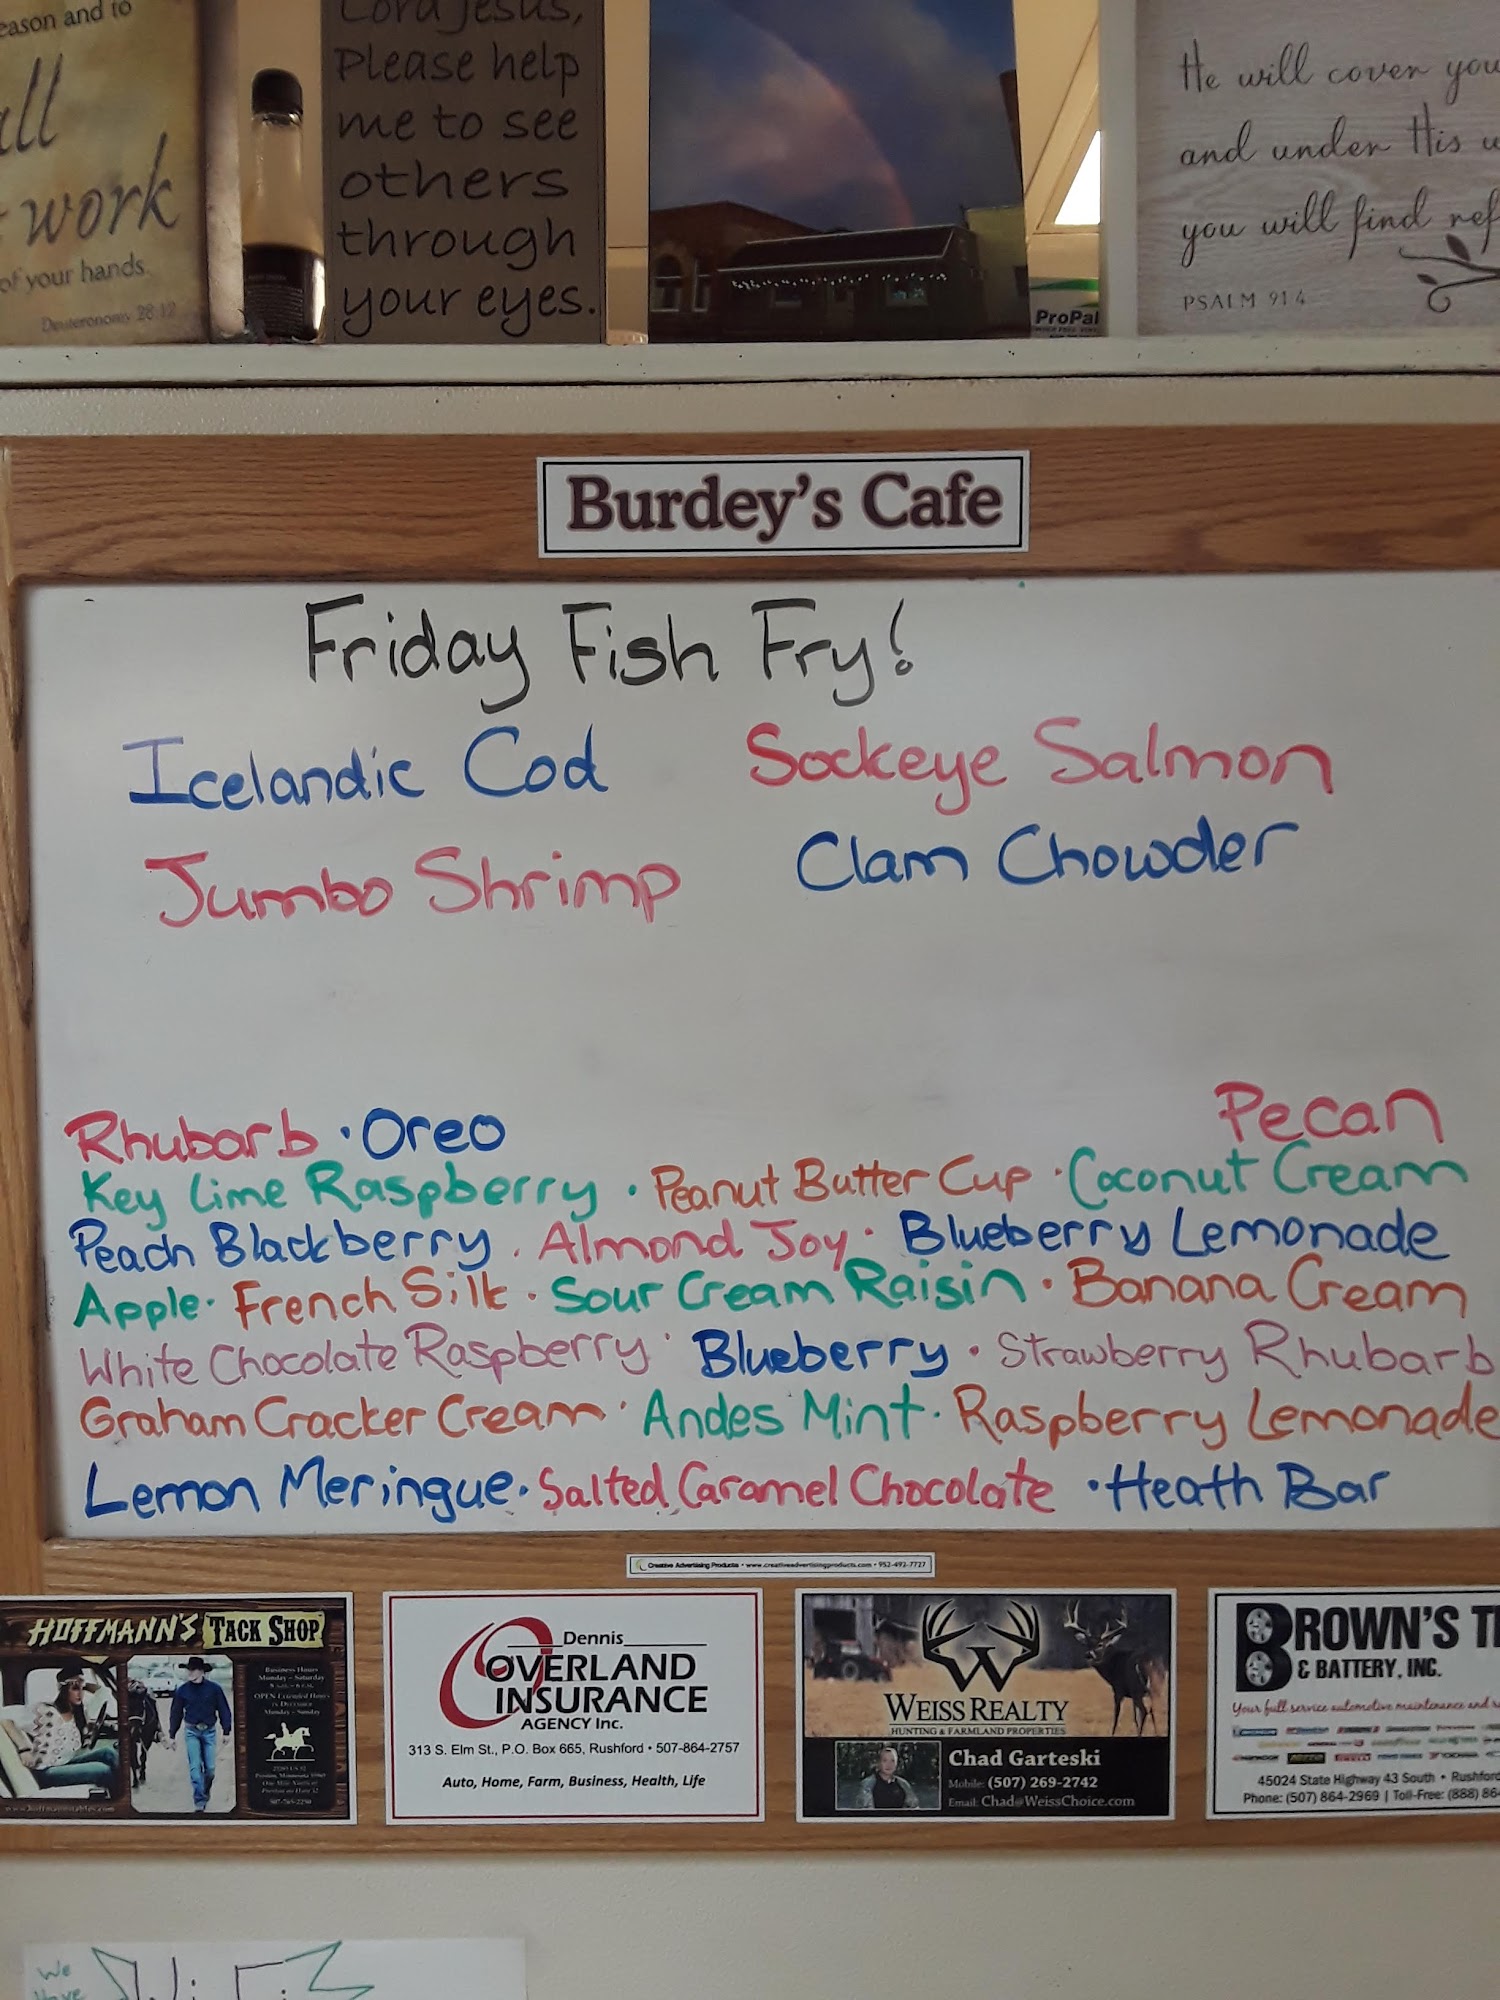 eason and to
all
work
of your hands.
Deuteronomy 28:12
Lord Jesus,
Please help
me to see
others
through
your eyes.
ProPal
He will cover you
and under His
you will find ref
PSALM 91:4
Burdey's Cafe
Friday Fish Fry!
Icelandic Cod Sockeye Salmon
Jumbo Shrimp Clam Chowder
Pecan
Rhubarb · Oreo
Key Lime Raspberry · Peanut Butter Cup · Coconut Cream
Peach Blackberry · Almond Joy · Blueberry Lemonade
Apple · French Silk · Sour Cream Raisin · Banana Cream
White Chocolate Raspberry · Blueberry · Strawberry Rhubarb
Graham Cracker Cream · Andes Mint · Raspberry Lemonade
Lemon Meringue · Salted Caramel Chocolate · Heath Bar
Creative Advertising Products • www.creativeadvertisingproducts.com • 952-492-7727
HOFFMANN'S TACK SHOP
Business Hours
Monday – Saturday
OPEN Extended Hours
in December
Monday – Sunday
507-765-2250
www.hoffmannstables.com
Dennis
OVERLAND
INSURANCE
AGENCY Inc.
313 S. Elm St., P.O. Box 665, Rushford • 507-864-2757
Auto, Home, Farm, Business, Health, Life
W
WEISS REALTY
HUNTING & FARMLAND PROPERTIES
Chad Garteski
Mobile: (507) 269-2742
Email: Chad@WeissChoice.com
BROWN'S TI
& BATTERY, INC.
Your full service automotive maintenance and
45024 State Highway 43 South • Rushford
Phone: (507) 864-2969 | Toll-Free: (888) 86
We
Have